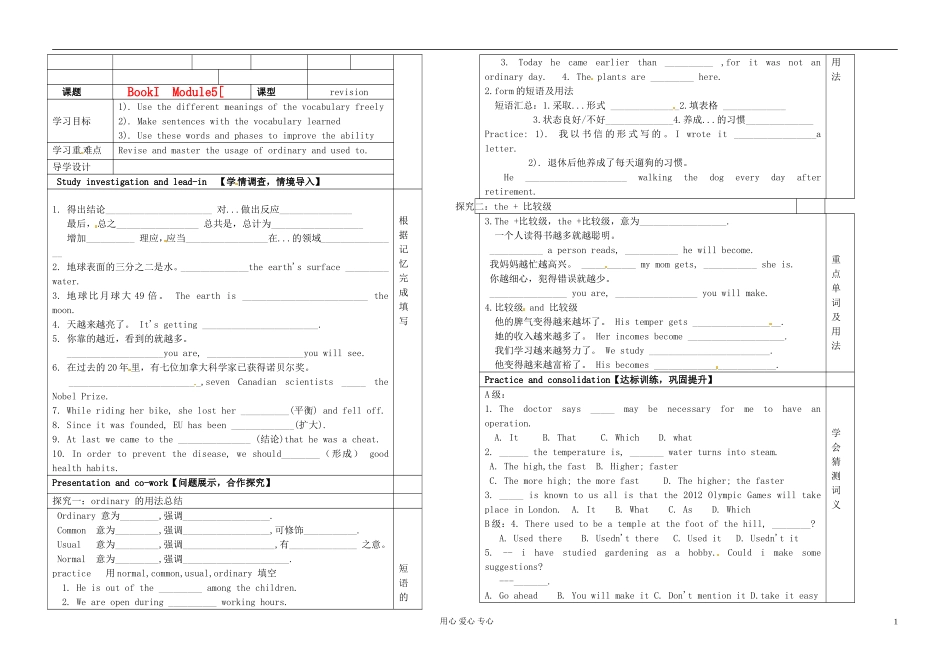 课题 BookI Module5[ 课型 revision
学习目标
1). Use the different meanings of the vocabulary freely
2). Make sentences with the vocabulary learned
3). Use these words and phases to improve the ability
学习重难点 Revise and master the usage of ordinary and used to.
导学设计
Study investigation and lead-in 【学情调查，情境导入】
1. 得出结论______________________ 对...做出反应_______________
最后，总之_________________ 总共是，总计为___________________
增加__________ 理应,应当_________________在...的领域______________
__
2. 地球表面的三分之二是水。______________the earth's surface _________
water.
3. 地球比月球大 49 倍。 The earth is __________________________ the
moon.
4. 天越来越亮了。 It's getting ________________________.
5. 你靠的越近，看到的就越多。
____________________you are, ____________________you will see.
6. 在过去的 20 年里，有七位加拿大科学家已获得诺贝尔奖。
___________________________,seven Canadian scientists _____ the
Nobel Prize.
7. While riding her bike, she lost her __________(平衡) and fell off.
8. Since it was founded, EU has been _____________(扩大).
9. At last we came to the _______________ (结论)that he was a cheat.
10. In order to prevent the disease, we should________（形成） good
health habits.
根
据
记
忆
完
成
填
写
Presentation and co-work【问题展示，合作探究】
探究一：ordinary 的用法总结
Ordinary 意为________,强调__________________.
Common 意为_________,强调__________________,可修饰___________.
Usual 意为_________,强调___________________,有___________ 之意。
Normal 意为_________,强调______________________.
practice 用 normal,common,usual,ordinary 填空
1. He is out of the _________ among the children.
2. We are open during __________ working hours.
短
语
的
3. Today he came earlier than __________ ,for it was not an
ordinary day. 4. The plants are _________ here.
2.form 的短语及用法
短语汇总：1.采取...形式 ______________2.填表格 _____________
3.状态良好/不好______________4.养成...的习惯______________
Practice: 1). 我以书信的形式写的。I wrote it _________________a
letter.
2). 退休后他养成了每天遛狗的习惯。
He _____________________ walking the dog every day after
retirement.
用
法
探究二：the + 比较级
3.The +比较级，the +比较级，意为__________________.
一个人读得书越多就越聪明。
___________ a person reads, ___________ he will become.
我妈妈越忙越高兴。 ___________ my mom gets, ___________ she is.
你越细心，犯得错误就越少。
________________ you are, _________________ you will make.
4.比较级 and 比较级
他的脾气变得越来越坏了。 His temper gets __________________.
她的收入越来越多了。 Her incomes become ____________________.
我们学习越来越努力了。 We study _________________________.
他变得越来越富裕了。 His becomes _________________________.
重
点
单
词
及
用
法
Practice and consolidation【达标训练，巩固提升】
A 级：
1. The doctor says _____ may be necessary for me to have an
operation.
A. It B. That C. Which D. what
2. ______ the temperature is, _______ water turns into steam.
A. The high,the fast B. Higher; faster
C. The more high; the more fast D. The higher; the faster
3. _____ is known to us all is that the 2012 Olympic Games will take
place in London. A. It B. What C. As D. Which
B 级：4. There used to be a temple at the foot of the hill, ________?
A. Used there B. Usedn't there C. Used it D. Usedn't it
5. -- i have studied gardening as a hobby. Could i make some
suggestions?
---_______.
A. Go ahead B. You will make it C. Don't mention it D.take it easy
学
会
猜
测
词
义
用心 爱心 专心 1